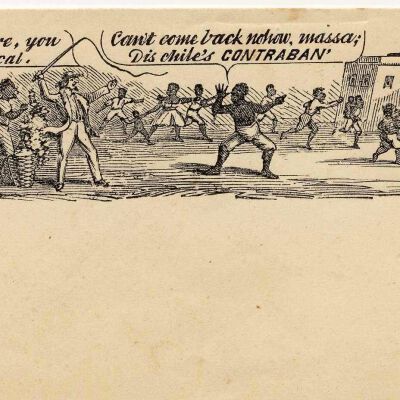 re, you
cal.
Can't come back nohow, massa;
Dis chile's CONTRABAN'